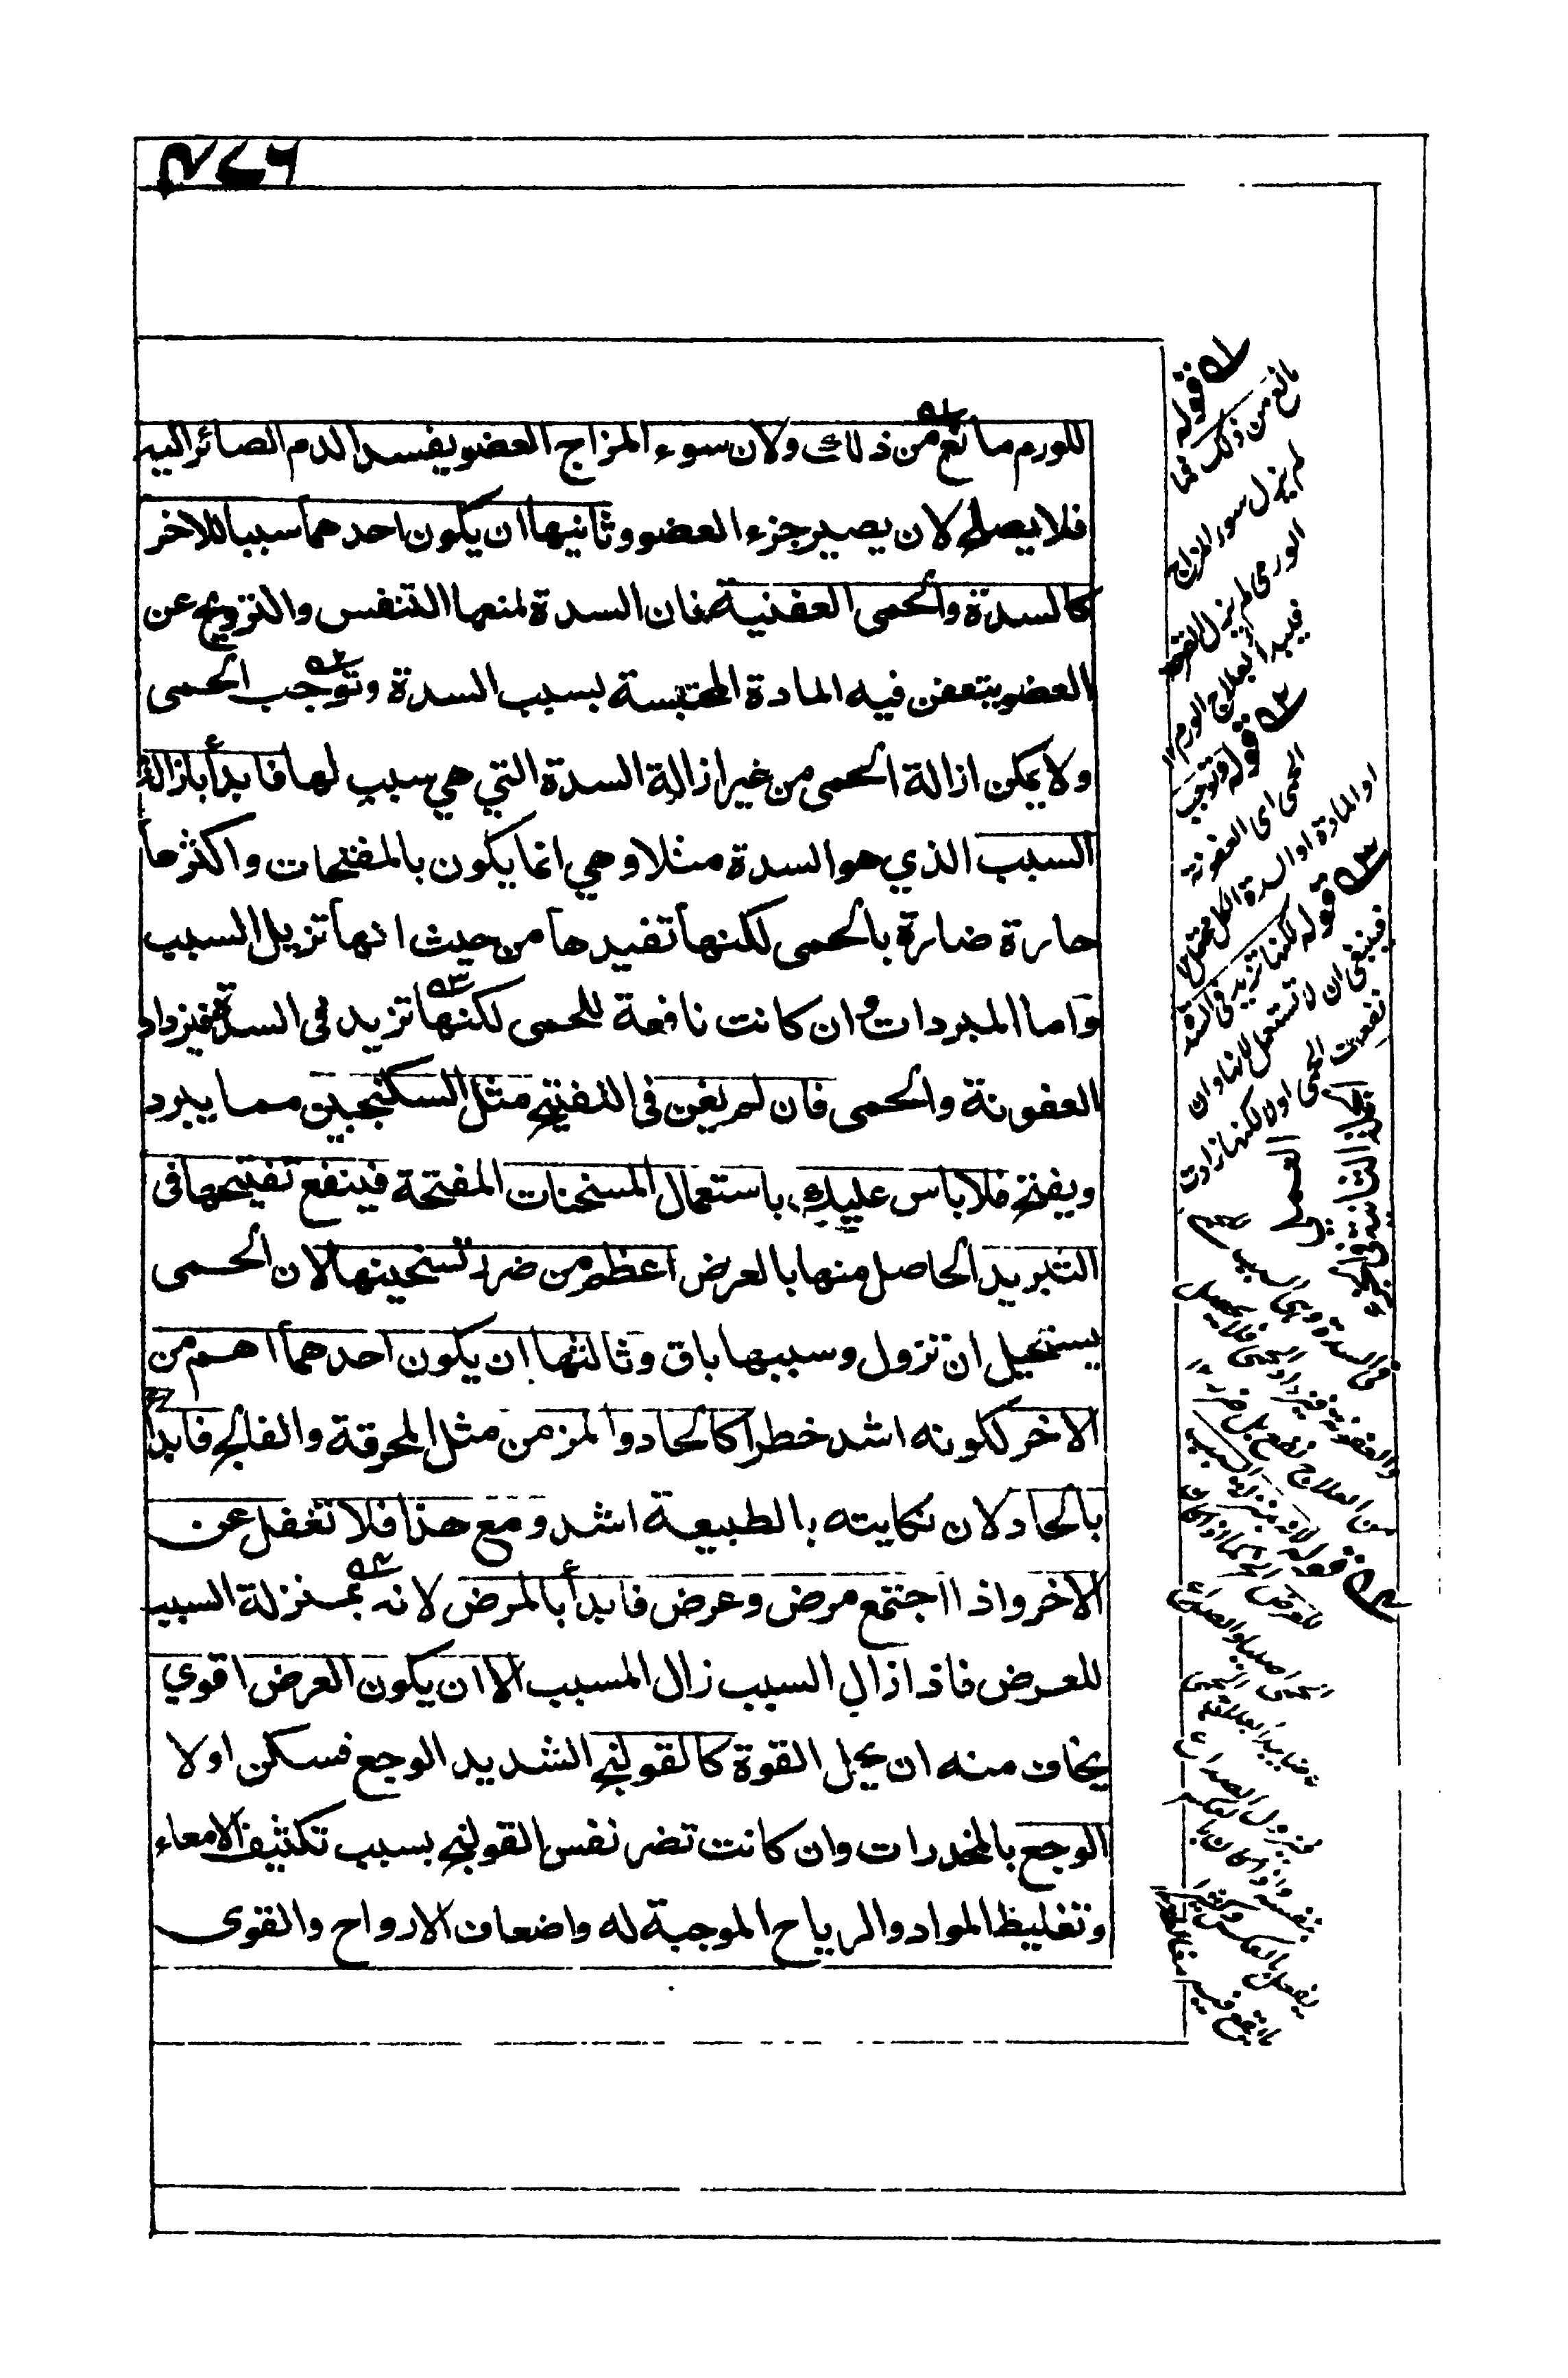 للورم مانع من ذلك ولان سوء المزاج العضو يفسد الدم الصائر اليه
فلا يصلح لان يصير جزء العضو وثانيها ان يكون احدهما سببا للاخر
كالسدة والحمى العفنية فان السدة لمنعها التنفس والترويح عن
العضو يتعفن فيه المادة المحتبسة بسبب السدة وتوجب الحمى
ولا يمكن ازالة الحمى من غير ازالة السدة التي هي سبب لها فابدأ بازالة
السبب الذي هو السدة مثلا وهي انما يكون بالمفتحات واكثرها
حارة ضارة بالحمى لكنها تفيدها من حيث انها تزيل السبب
واما المبردات وان كانت نافعة للحمى لكنها تزيد في السدة فيزداد
العفونة والحمى فان لم يغن في التفتيح مثل السكنجبين مما يبرد
ويفتح فلا باس عليك باستعمال المسخنات المفتحة فينفع تفتيحها في
التبريد الحاصل منها بالعرض اعظم من ضرر تسخينها لان الحمى
يستحيل ان تزول وسببها باق وثالثها ان يكون احدهما اهم من
الاخر لكونه اشد خطرا كالحاد والمزمن مثل المحرقة والفالج فابدأ
بالحاد لان نكايته بالطبيعة اشد ومع هذا فلا تغفل عن
الاخر واذا اجتمع مرض وعرض فابدأ بالمرض لانه بمنزلة السبب
للعرض فاذا زال السبب زال المسبب الا ان يكون العرض اقوي
يخاف منه ان يحل القوة كالقولنج الشديد الوجع فسكن اولا
الوجع بالمخدرات وان كانت تضر نفس القولنج بسبب تكثيف الامعاء
وتغليظ المواد والرياح الموجبة له واضعاف الارواح والقوى
قوله
مانع من ذلك فما
لم يزل سوء المزاج
الورمى لم يزل القرحة
فيبدأ بعلاج الورم
قوله وتوجب
الحمى اى العفونة
او المادة او السدة الكل محتمل
قوله لكنها تزيد في السدة
فينبغي ان لا تستعمل لانها وان
نفعت الحمى اولا لكنها زادت